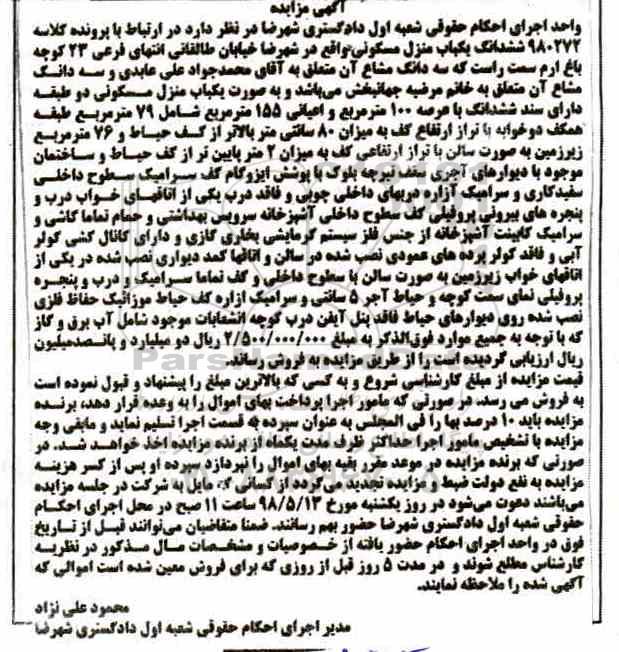 آگهی مزایده
واحد اجرای احکام حقوقی شعبه اول دادگستری شهرضا در نظر دارد در ارتباط با پرونده کلاسه
۹۸۰۲۷۲ ششدانگ یکباب منزل مسکونی واقع در شهرضا خیابان طالقانی انتهای فرعی ۲۳ کوچه
باغ ارم سمت راست که سه دانگ مشاع آن متعلق به آقای محمدجواد علی عابدی و سه دانگ
مشاع آن متعلق به خانم مرضیه جهانبخش می‌باشد و به صورت یکباب منزل مسکونی دو طبقه
دارای سند ششدانگ با عرصه ۱۰۰ مترمربع و اعیانی ۱۵۵ مترمربع شامل ۷۹ مترمربع طبقه
همکف دوخوابه با تراز ارتفاع کف به میزان ۸۰ سانتی متر بالاتر از کف حیاط و ۷۶ مترمربع
زیرزمین به صورت سالن با تراز ارتفاعی کف به میزان ۲ متر پایین تر از کف حیاط و ساختمان
موجود با دیوارهای آجری سقف تیرچه بلوک با پوشش ایزوگام کف سرامیک سطوح داخلی
سفیدکاری و سرامیک آزاره دربهای داخلی چوبی و فاقد درب یکی از اتاقهای خواب درب و
پنجره های بیرونی پروفیلی کف سطوح داخلی آشپزخانه سرویس بهداشتی و حمام تماما کاشی و
سرامیک کابینت آشپزخانه از جنس فلز سیستم گرمایشی بخاری گازی و دارای کانال کشی کولر
آبی و فاقد کولر پرده های عمودی نصب شده در سالن و اتاقها کمد دیواری نصب شده در یکی از
اتاقهای خواب زیرزمین به صورت سالن با سطوح داخلی و کف تماما سرامیک و درب و پنجره
پروفیلی نمای سمت کوچه و حیاط آجر ۵ سانتی و سرامیک ازاره کف حیاط موزائیک حفاظ فلزی
نصب شده روی دیوارهای حیاط فاقد پنل آیفن درب کوچه انشعابات موجود شامل آب برق و گاز
که با توجه به جمیع موارد فوق‌الذکر به مبلغ ۲/۵۰۰/۰۰۰/۰۰۰ ریال دو میلیارد و پانصدمیلیون
ریال ارزیابی گردیده است را از طریق مزایده به فروش رساند.
قیمت مزایده از مبلغ کارشناسی شروع و به کسی که بالاترین مبلغ را پیشنهاد و قبول نموده است
به فروش می رسد، در صورتی که مامور اجرا پرداخت بهای اموال را به وعده قرار دهد، برنده
مزایده باید ۱۰ درصد بها را فی المجلس به عنوان سپرده به قسمت اجرا تسلیم نماید و مابقی وجه
مزایده با تشخیص مامور اجرا حداکثر ظرف مدت یکماه از برنده مزایده اخذ خواهد شد. در
صورتی که برنده مزایده در موعد مقرر بقیه بهای اموال را نپردازد سپرده او پس از کسر هزینه
مزایده به نفع دولت ضبط و مزایده تجدید می‌گردد از کسانی که مایل به شرکت در جلسه مزایده
می‌باشند دعوت می‌شود در روز یکشنبه مورخ ۹۸/۵/۱۳ ساعت ۱۱ صبح در محل اجرای احکام
حقوقی شعبه اول دادگستری شهرضا حضور بهم رسانند. ضمنا متقاضیان می‌توانند قبل از تاریخ
فوق در واحد اجرای احکام حضور یافته از خصوصیات و مشخصات مال مذکور در نظریه
کارشناس مطلع شوند و در مدت ۵ روز قبل از روزی که برای فروش معین شده است اموالی که
آگهی شده را ملاحظه نمایند.
محمود علی نژاد
مدیر اجرای احکام حقوقی شعبه اول دادگستری شهرضا